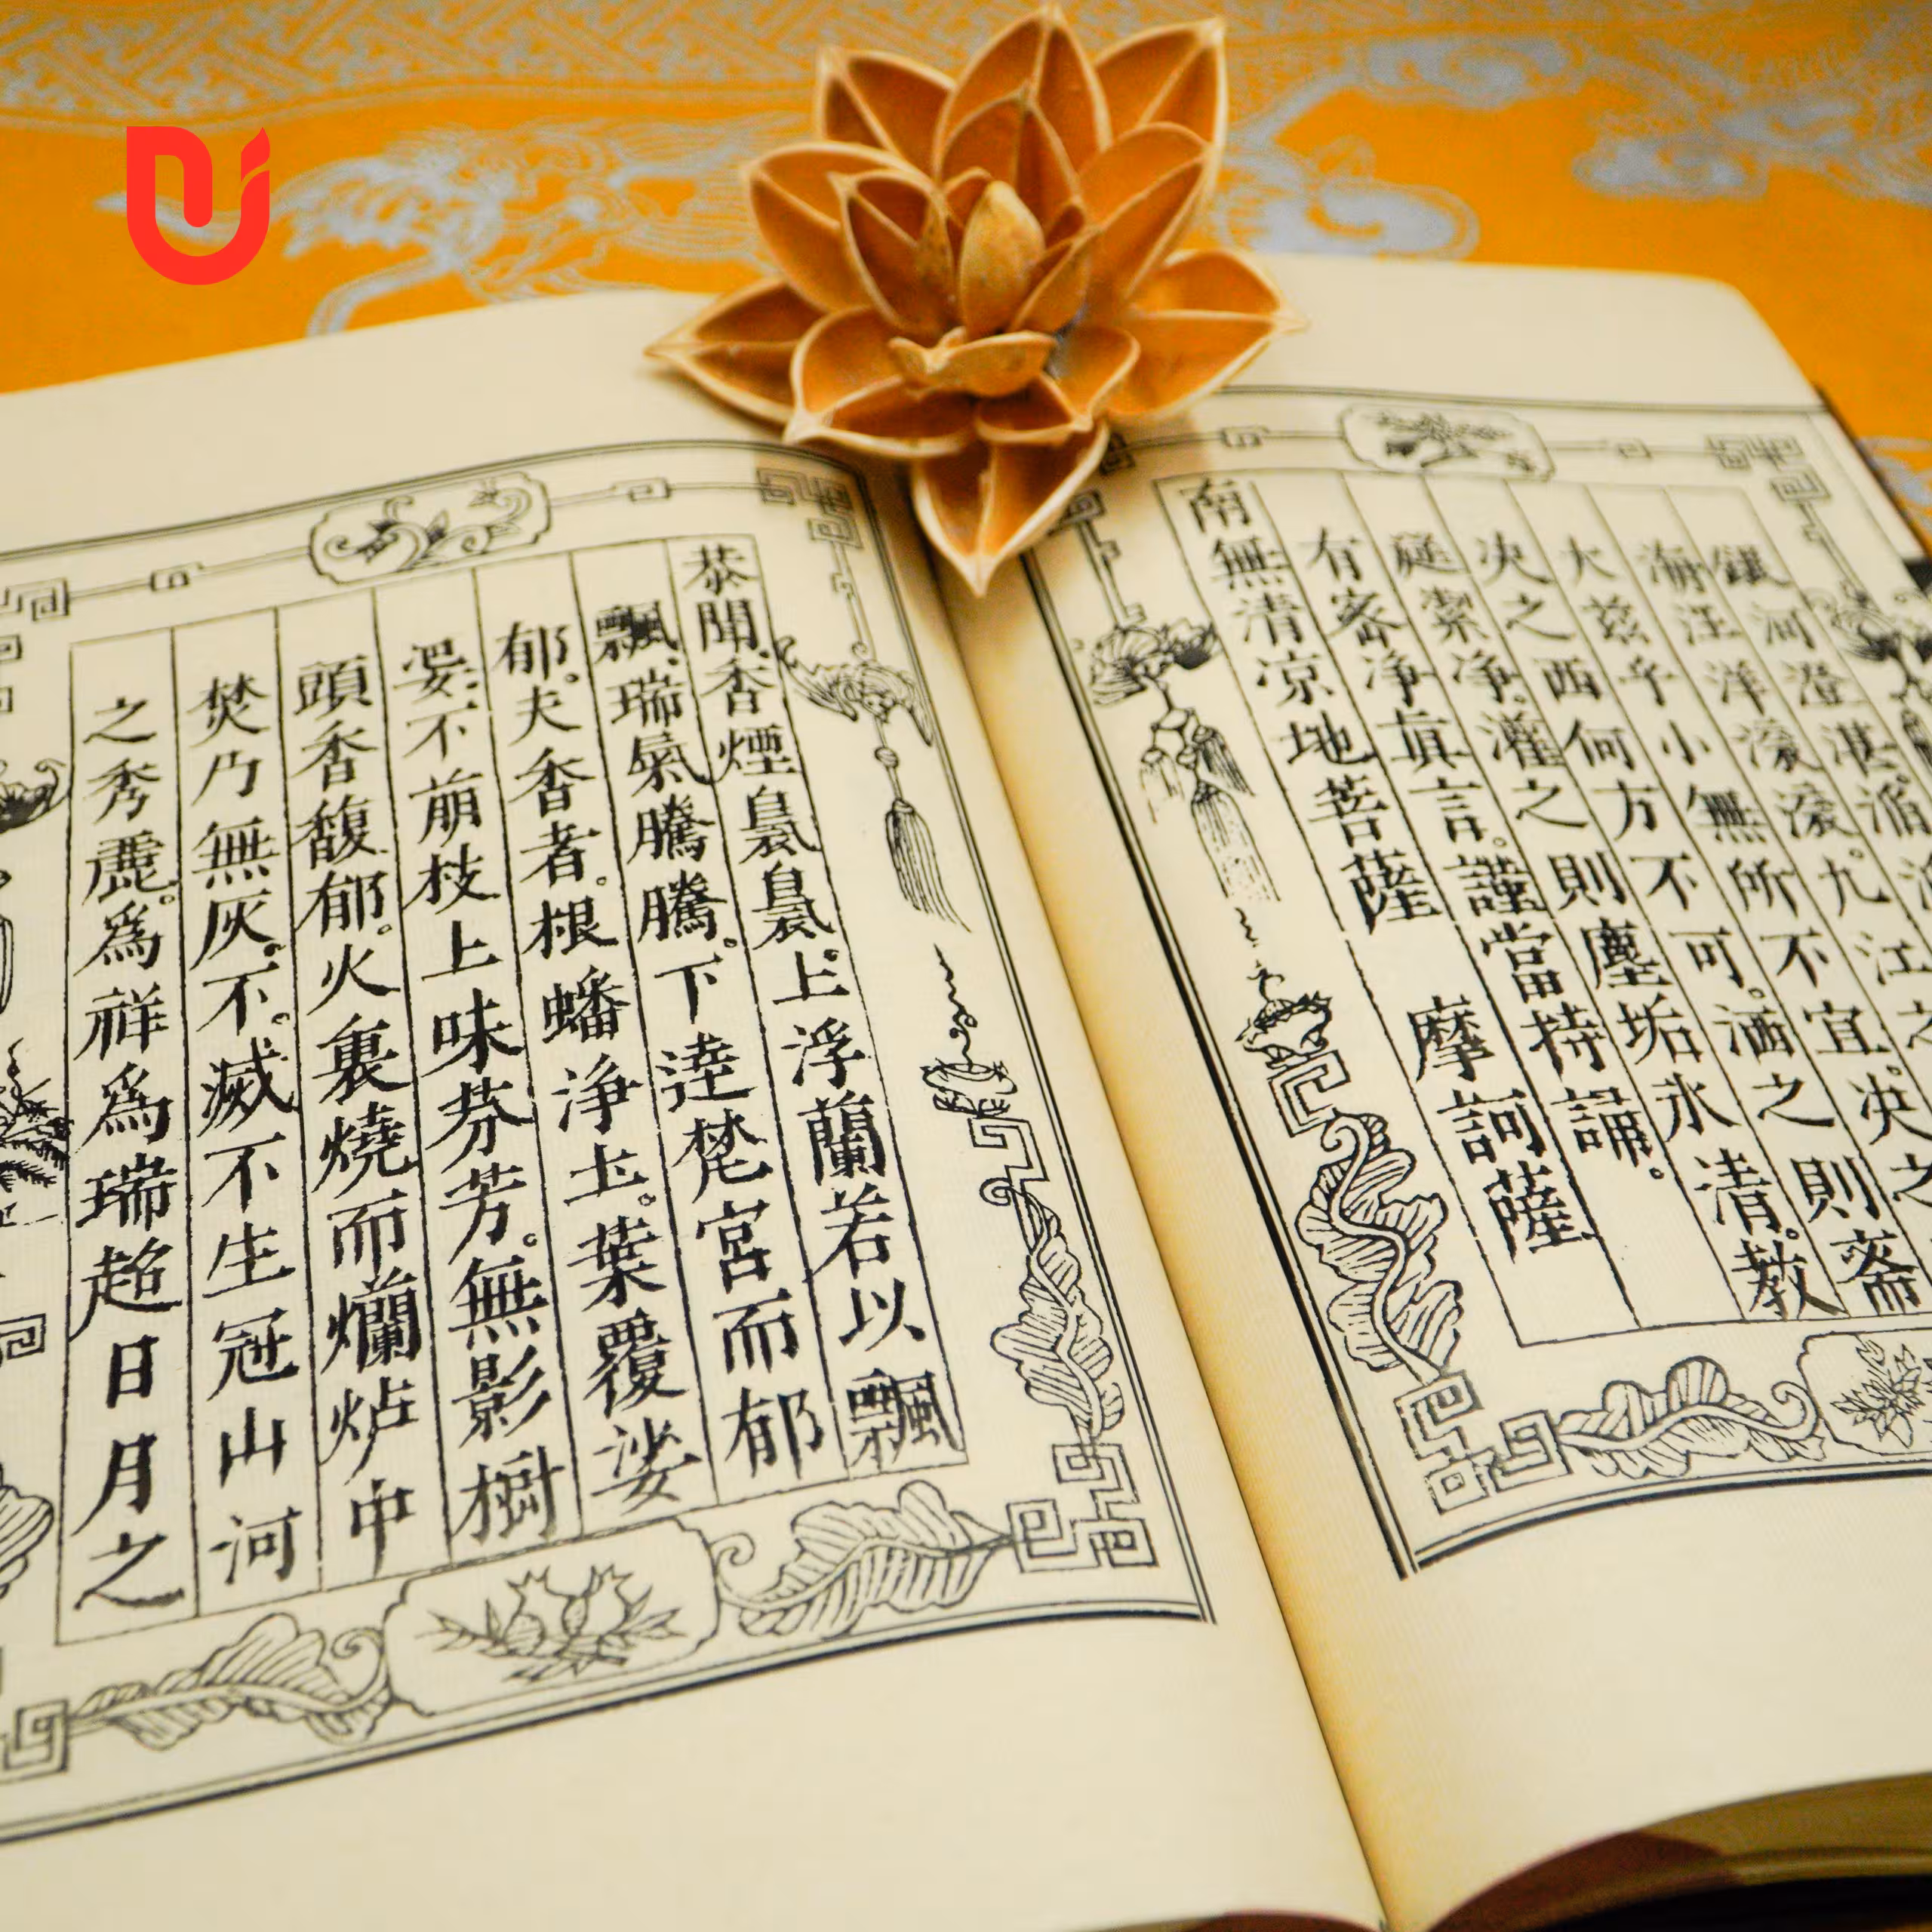 銀河澄湛滔
海汪洋滾滾。九江之
大玆乎小無所不宜。决之
决之西何方不可。洒之則齋
庭潔淨。灌之則塵垢永清。教
有密淨真言。謹當持誦。
南無清凉地菩薩　摩訶薩
恭聞。香煙裊裊。上浮蘭若以飄
飄。瑞氣騰騰。下達梵宮而郁
郁。夫香者。根蟠淨土。葉覆娑
婆。不萠枝上味芬芳。無影樹
頭香馥郁。火裏燒而爛炉中
焚乃無灰。不滅不生冠山河
之秀麗。爲祥爲瑞超日月之